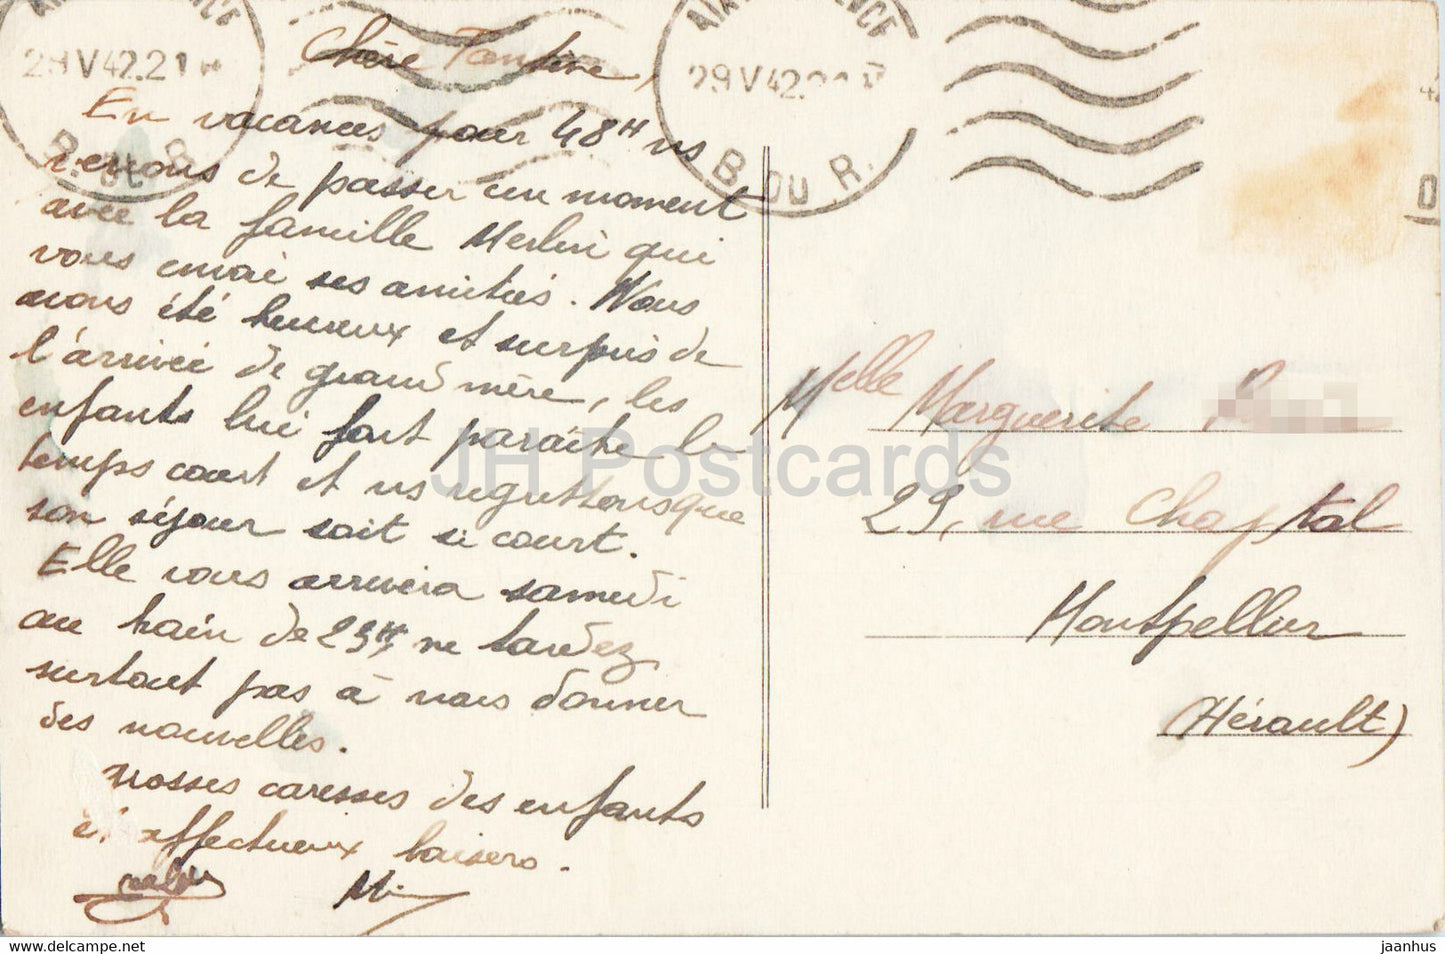 AIX PROVENCE
29 V 42.21
B. DU R.
29 V 42
B. DU R.
Chère Tantine,
En vacances pour 48 H ns
venons de passer un moment
avec la famille Merlin qui
vous envoi ses amitiés. Nous
avons été heureux et surpris de
l'arrivée de grand mère, les
enfants lui font paraître le
temps court et ns regrettons que
son séjour soit si court.
Elle vous arrivera samedi
au train de 23H, ne tardez
surtout pas à nous donner
des nouvelles.
Grosses caresses des enfants
et affectueux baisers.
Melle Marguerite
29, rue Chaptal
Montpellier
(Hérault)
JH Postcards
jaanhus
2022-04-14 02:42